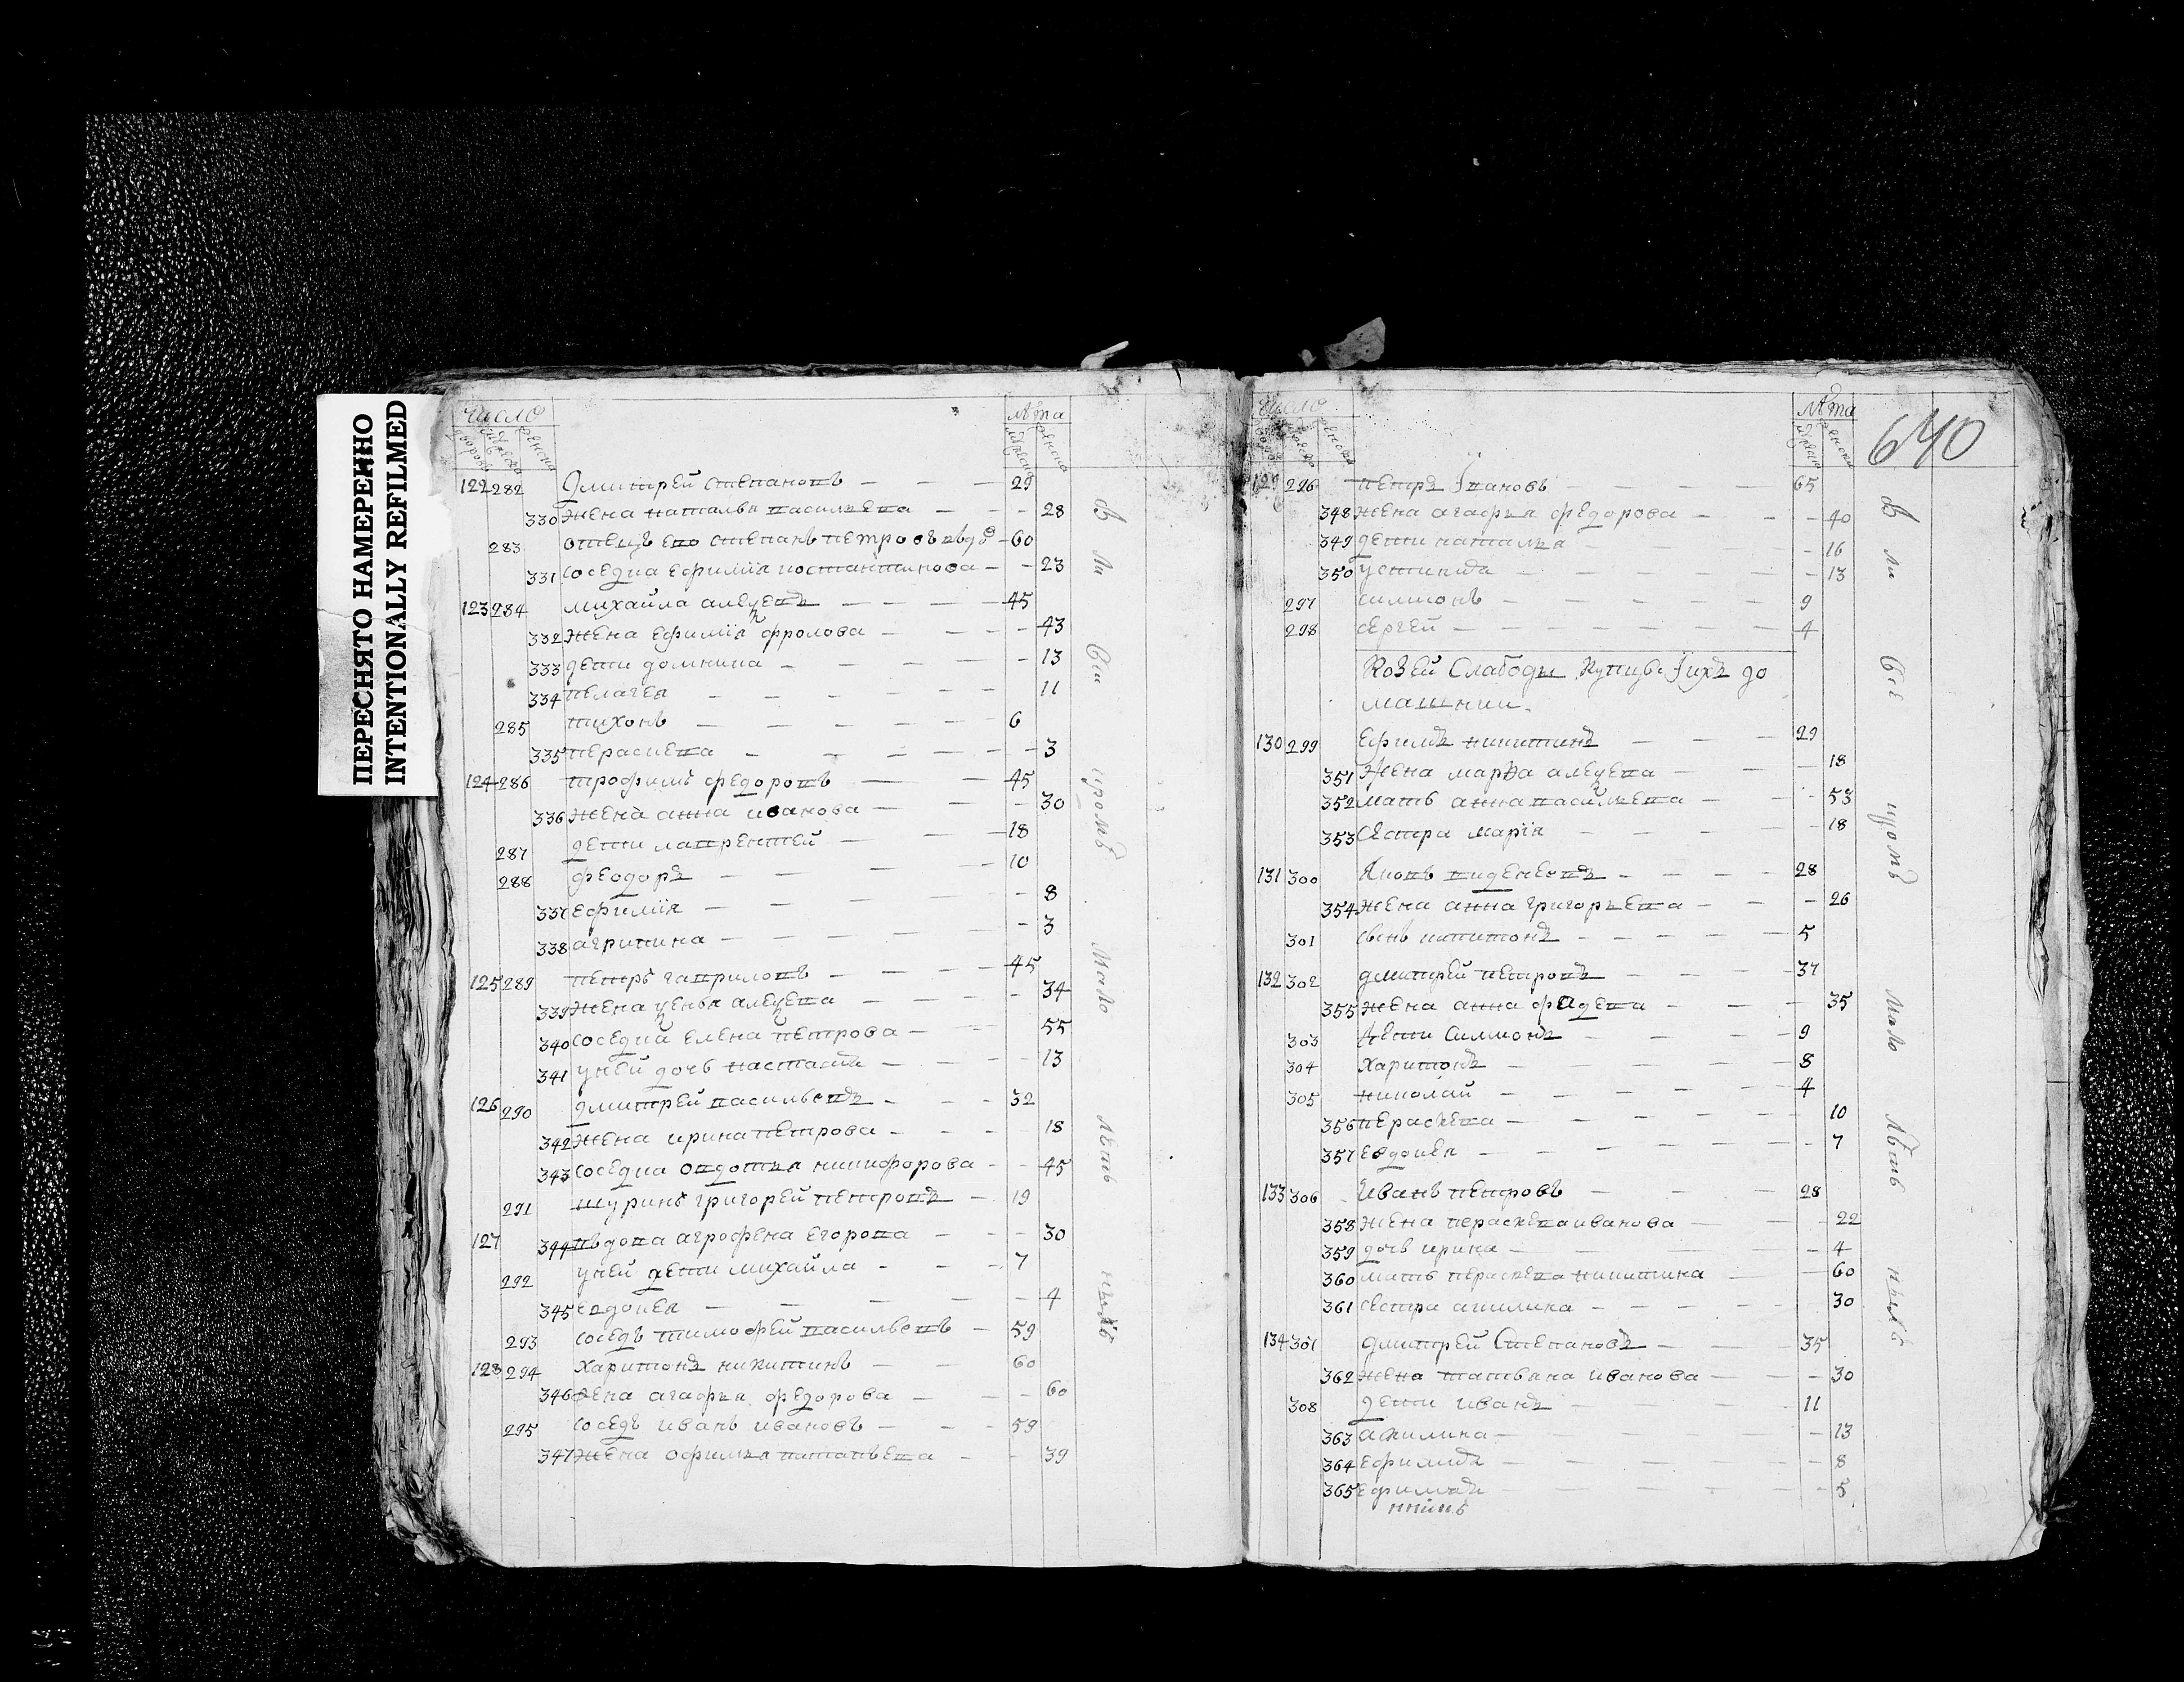 ПЕРЕСНЯТО НАМЕРЕННО
INTENTIONALLY REFILMED
число лѣта
122 282 Дмитрей степановъ 29
330 жена наталья васильева 28
283 отецъ ево степанъ петровъ вдъ 60
331 соседка ефимия костантинова 23
123 284 михайла алексевъ 45
332 жена ефимия фролова 43
333 дети домникиа 13
334 пелагея 11
285 тихонъ 6
335 пераскева 3
124 286 трофимъ федоровъ 45
336 жена анна иванова 30
287 дети лаврентей 18
288 феодоръ 10
337 ефимия 8
338 агрипина 3
125 289 петръ гавриловъ 45
339 жена ксенья алексева 34
340 соседка елена петрова 55
341 у ней дочь настасия 13
126 290 дмитрей васильевъ 32
342 жена ирина петрова 18
343 соседка овдотья никифорова 45
291 шуринъ григорей петровъ 19
127 344 вдова агрофена егорова 30
292 у ней дети михайла 7
345 евдокея 4
293 соседъ тимофей васильевъ 59
128 294 харитонъ никитинъ 60
346 жена агафья федорова 60
295 соседъ иванъ ивановъ 59
347 жена офимья потапьева 39
В ли сии кромѣ Мало лѣт ныхъ
число лѣта
640
129 296 петръ Iвановъ 65
348 жена агафья федорова 40
349 дети наталья 16
350 устиния 13
297 симионъ 9
298 сергей 4
Козей Слабоды купцы Iихъ до
машнии
130 299 Ефимъ никитинъ 29
351 жена марѳа алексева 18
352 мать анна васильева 53
353 сестра мария 18
131 300 Яковъ виденеовъ 28
354 жена анна григорьева 26
301 сынъ капитонъ 5
132 302 дмитрей петровъ 37
355 жена анна фадева 35
303 дети Симионъ 9
304 харитонъ 8
305 николай 4
356 пераскева 10
357 евдокея 7
133 306 Иванъ петровъ 28
358 жена пераскева иванова 22
359 дочь ирина 4
360 мать пераскева никитина 60
361 сестра акилина 30
134 307 дмитрей Степановъ 35
362 жена татьяна иванова 30
308 дети иванъ 11
363 акилина 13
364 ефимия 8
365 ефимия 5
В ли Все кромѣ Мало лѣт ныхъ